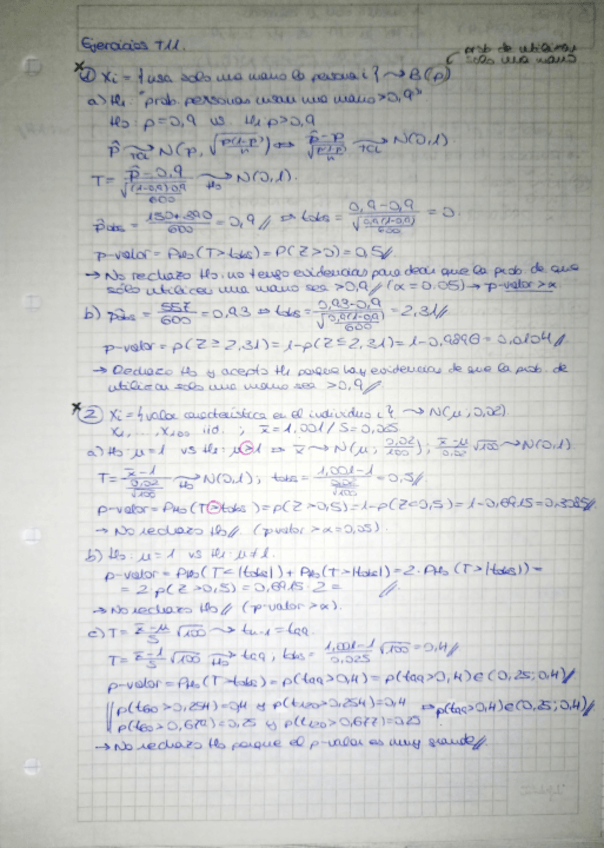 Ejercicios T.11.
prob de utilizar
solo una mano
① Xi = { usa solo una mano la persona i } ~> B(p)
a) H1: "prob. personas usan una mano > 0,9"
H0: p = 0,9 vs. H1: p > 0,9
p̂ ~>TCL N(p, √(p(1-p)/n)) ⇔ (p̂ - p)/√(p(1-p)/n) ~>TCL N(0,1)
T = (p̂ - 0,9)/√((1-0,9)0,9/600) ~>H0 N(0,1).
p̂obs = (150+390)/600 = 0,9 // ⇒ tobs = (0,9-0,9)/√(0,9(1-0,9)/600) = 0
p-valor = PH0(T > tobs) = P(Z > 0) = 0,5 //
→ No rechazo H0: no tengo evidencias para decir que la prob. de que
sólo utilicen una mano sea > 0,9 // (α = 0,05) → p-valor > α
b) p̂obs = 557/600 = 0,93 ⇒ tobs = (0,93-0,9)/√(0,9(1-0,9)/600) = 2,31 //
p-valor = p(Z ≥ 2,31) = 1-p(Z ≤ 2,31) = 1-0,9896 = 0,0104 //
→ Rechazo H0 y acepto H1 porque hay evidencias de que la prob. de
utilizar solo una mano sea > 0,9 //
② Xi = { valor característica en el individuo i }. ~> N(μ, 0,02)
X1, ..., X100 iid. ; x̄ = 1,001 / S = 0,025
a) H0: μ = 1 vs H1: μ > 1 ⇒ x̄ ~> N(μ, 0,02/√100) ; (x̄-μ)/0,02 √100 ~> N(0,1)
T = (x̄-1)/(0,02/√100) ~>H0 N(0,1) ; tobs = (1,001-1)/(0,02/√100) = 0,5 //
p-valor = PH0(T > tobs) = p(Z > 0,5) = 1-p(Z ≤ 0,5) = 1-0,6915 = 0,3085 //
→ No rechazo H0 // (p-valor > α = 0,05).
b) H0: μ = 1 vs H1: μ ≠ 1.
p-valor = PH0(T < -|tobs|) + PH0(T > |tobs|) = 2·PH0(T > |tobs|) =
= 2·p(Z > 0,5) = 0,6915·2 = //.
→ No rechazo H0 // (p-valor > α).
c) T = (x̄-μ)/S √100 ~> tn-1 = t99.
T = (x̄-1)/S √100 ~>H0 t99 ; tobs = (1,001-1)/0,025 √100 = 0,4 //
p-valor = PH0(T > tobs) = p(t99 > 0,4) = p(t99 > 0,4) ∈ (0,25; 0,4) //
p(t60 > 0,254) = 0,4 y p(t120 > 0,254) = 0,4 ⇒ p(t99 > 0,4) ∈ (0,25; 0,4) //
p(t60 > 0,679) = 0,25 y p(t120 > 0,677) = 0,25
→ No rechazo H0 porque el p-valor es muy grande //.